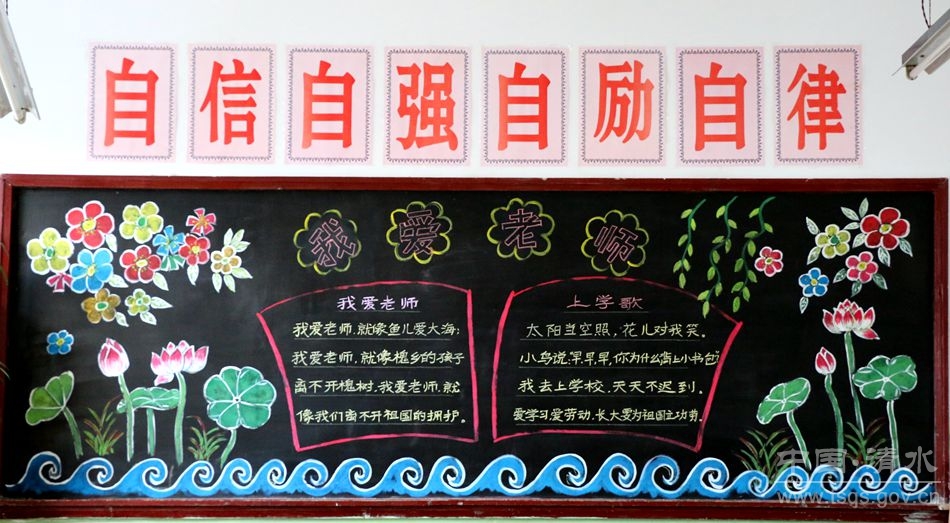 自信自强自励自律
我爱老师
我爱老师
我爱老师,就像鱼儿爱大海;
我爱老师,就像槐乡的孩子
离不开槐树,我爱老师,就
像我们离不开祖国的拥护。
上学歌
太阳当空照,花儿对我笑。
小鸟说,早早早,你为什么背上小书包
我去上学校,天天不迟到。
爱学习爱劳动,长大要为祖国立功劳。
中国·清水
www.tsqs.gov.cn